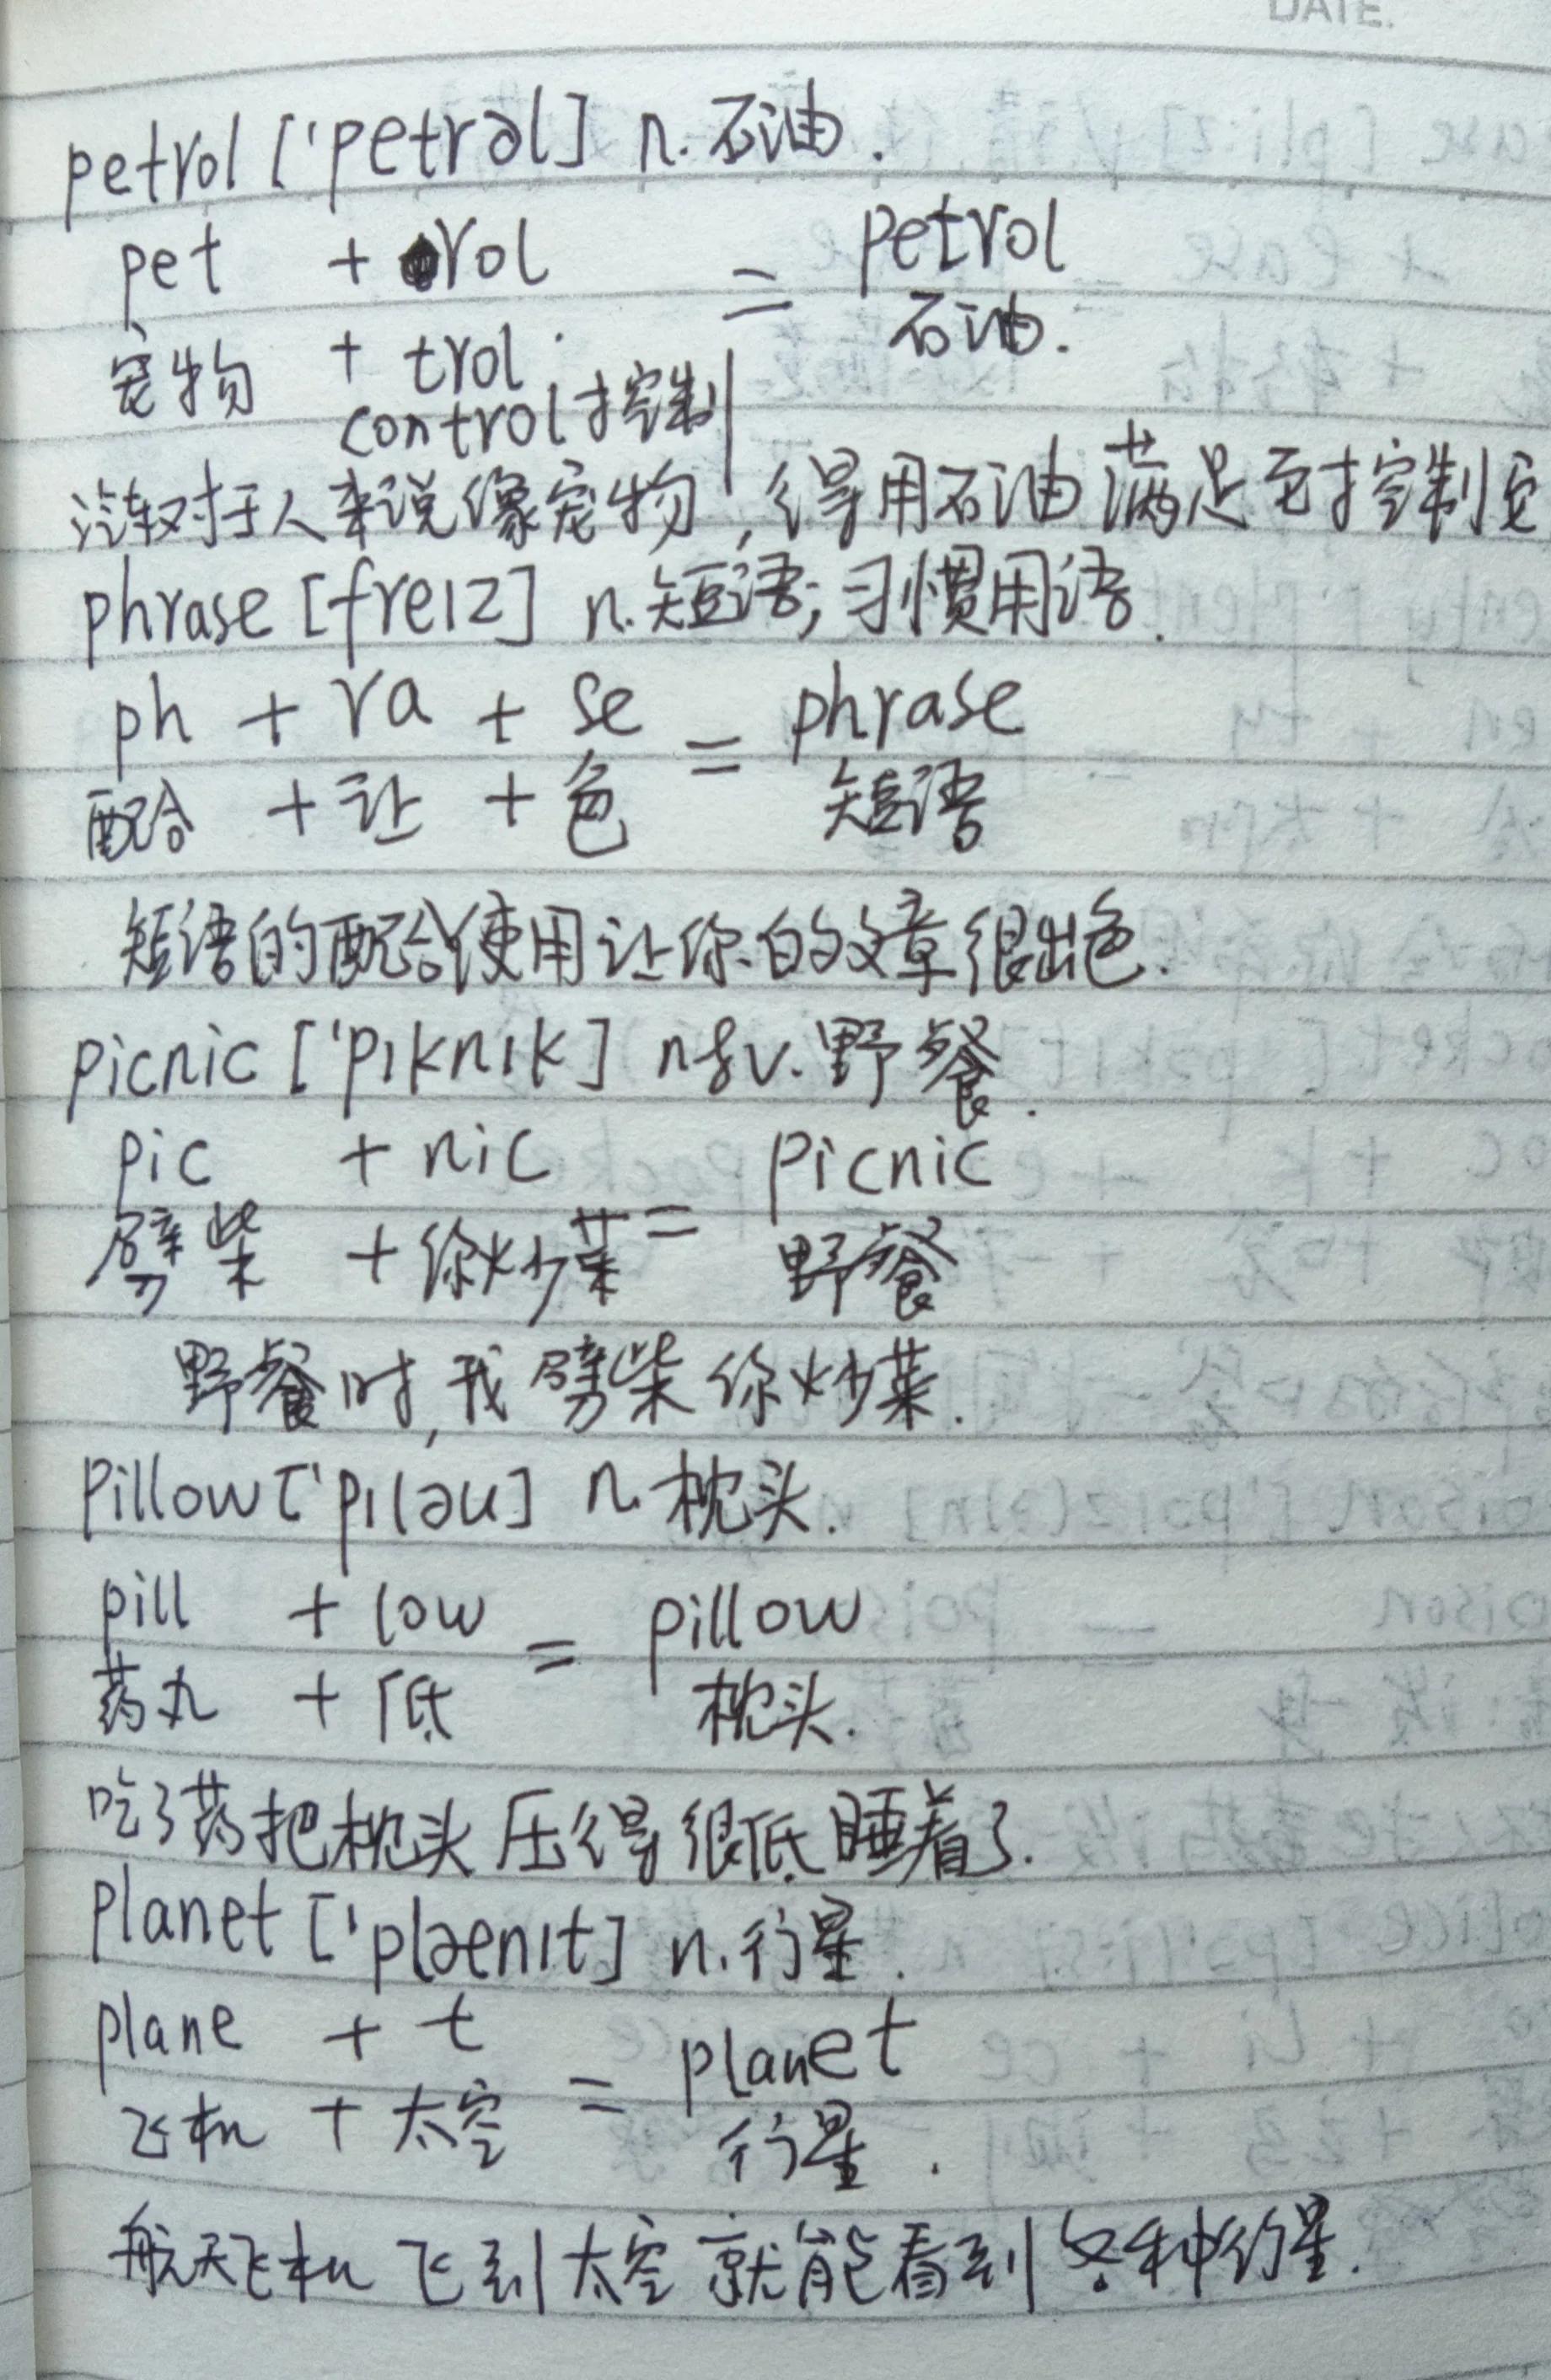 DATE.
petrol ['petrəl] n. 石油.
pet + rol = petrol
宠物 + trol 石油.
control控制
汽车对于人来说像宠物,得用石油满足它控制它
phrase [freɪz] n.短语;习惯用语.
ph + ra + se = phrase
配合 + 让 + 色 短语
短语的配合使用让你的文章很出色.
picnic ['pɪknɪk] n&v.野餐.
pic + nic = picnic
劈柴 + 你炒菜 野餐
野餐时,我劈柴你炒菜.
pillow ['pɪləu] n.枕头.
pill + low = pillow
药丸 + 低 枕头.
吃了药把枕头压得很低睡着了.
planet ['plænɪt] n.行星.
plane + t = planet
飞机 + 太空 行星.
航天飞机飞到太空就能看到各种行星.